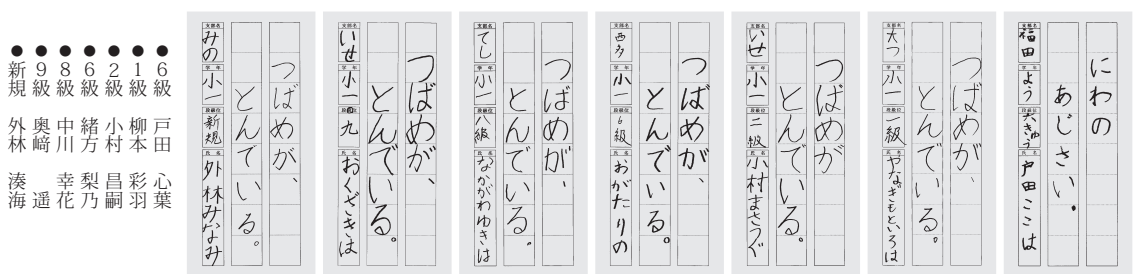 にわの
あじさい。
支部名 福田 学年 よう 段級位 六きゅう 氏名 戸田ここは
つばめが、
とんでいる。
支部名 大つ 学年 小一 段級位 一級 氏名 やなぎもといろは
つばめが、
とんでいる。
支部名 いせ 学年 小一 段級位 二級 氏名 小村まさつぐ
つばめが、
とんでいる。
支部名 西多 学年 小一 段級位 6級 氏名 おがたりの
つばめが、
とんでいる。
支部名 てし 学年 小一 段級位 八級 氏名 なかがわゆきは
つばめが、
とんでいる。
支部名 いせ 学年 小一 段級位 九 氏名 おくざきはるか
つばめが、
とんでいる。
支部名 みの 学年 小一 段級位 新規 氏名 外林みなみ
●6級 戸田 心葉
●1級 柳本 彩羽
●2級 小村 昌嗣
●6級 緒方 梨乃
●8級 中川 幸花
●9級 奥﨑 遥
●新規 外林 湊海